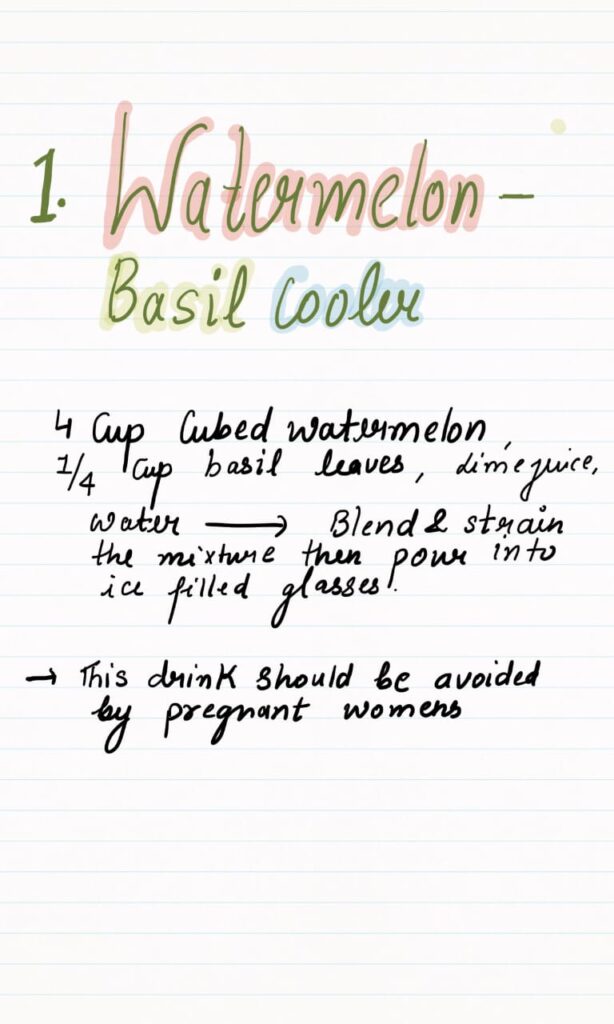 1. Watermelon -
Basil Cooler
4 Cup Cubed watermelon,
1/4 Cup basil leaves, lime juice,
water → Blend & strain
the mixture then pour into
ice filled glasses.
→ This drink should be avoided
by pregnant womens